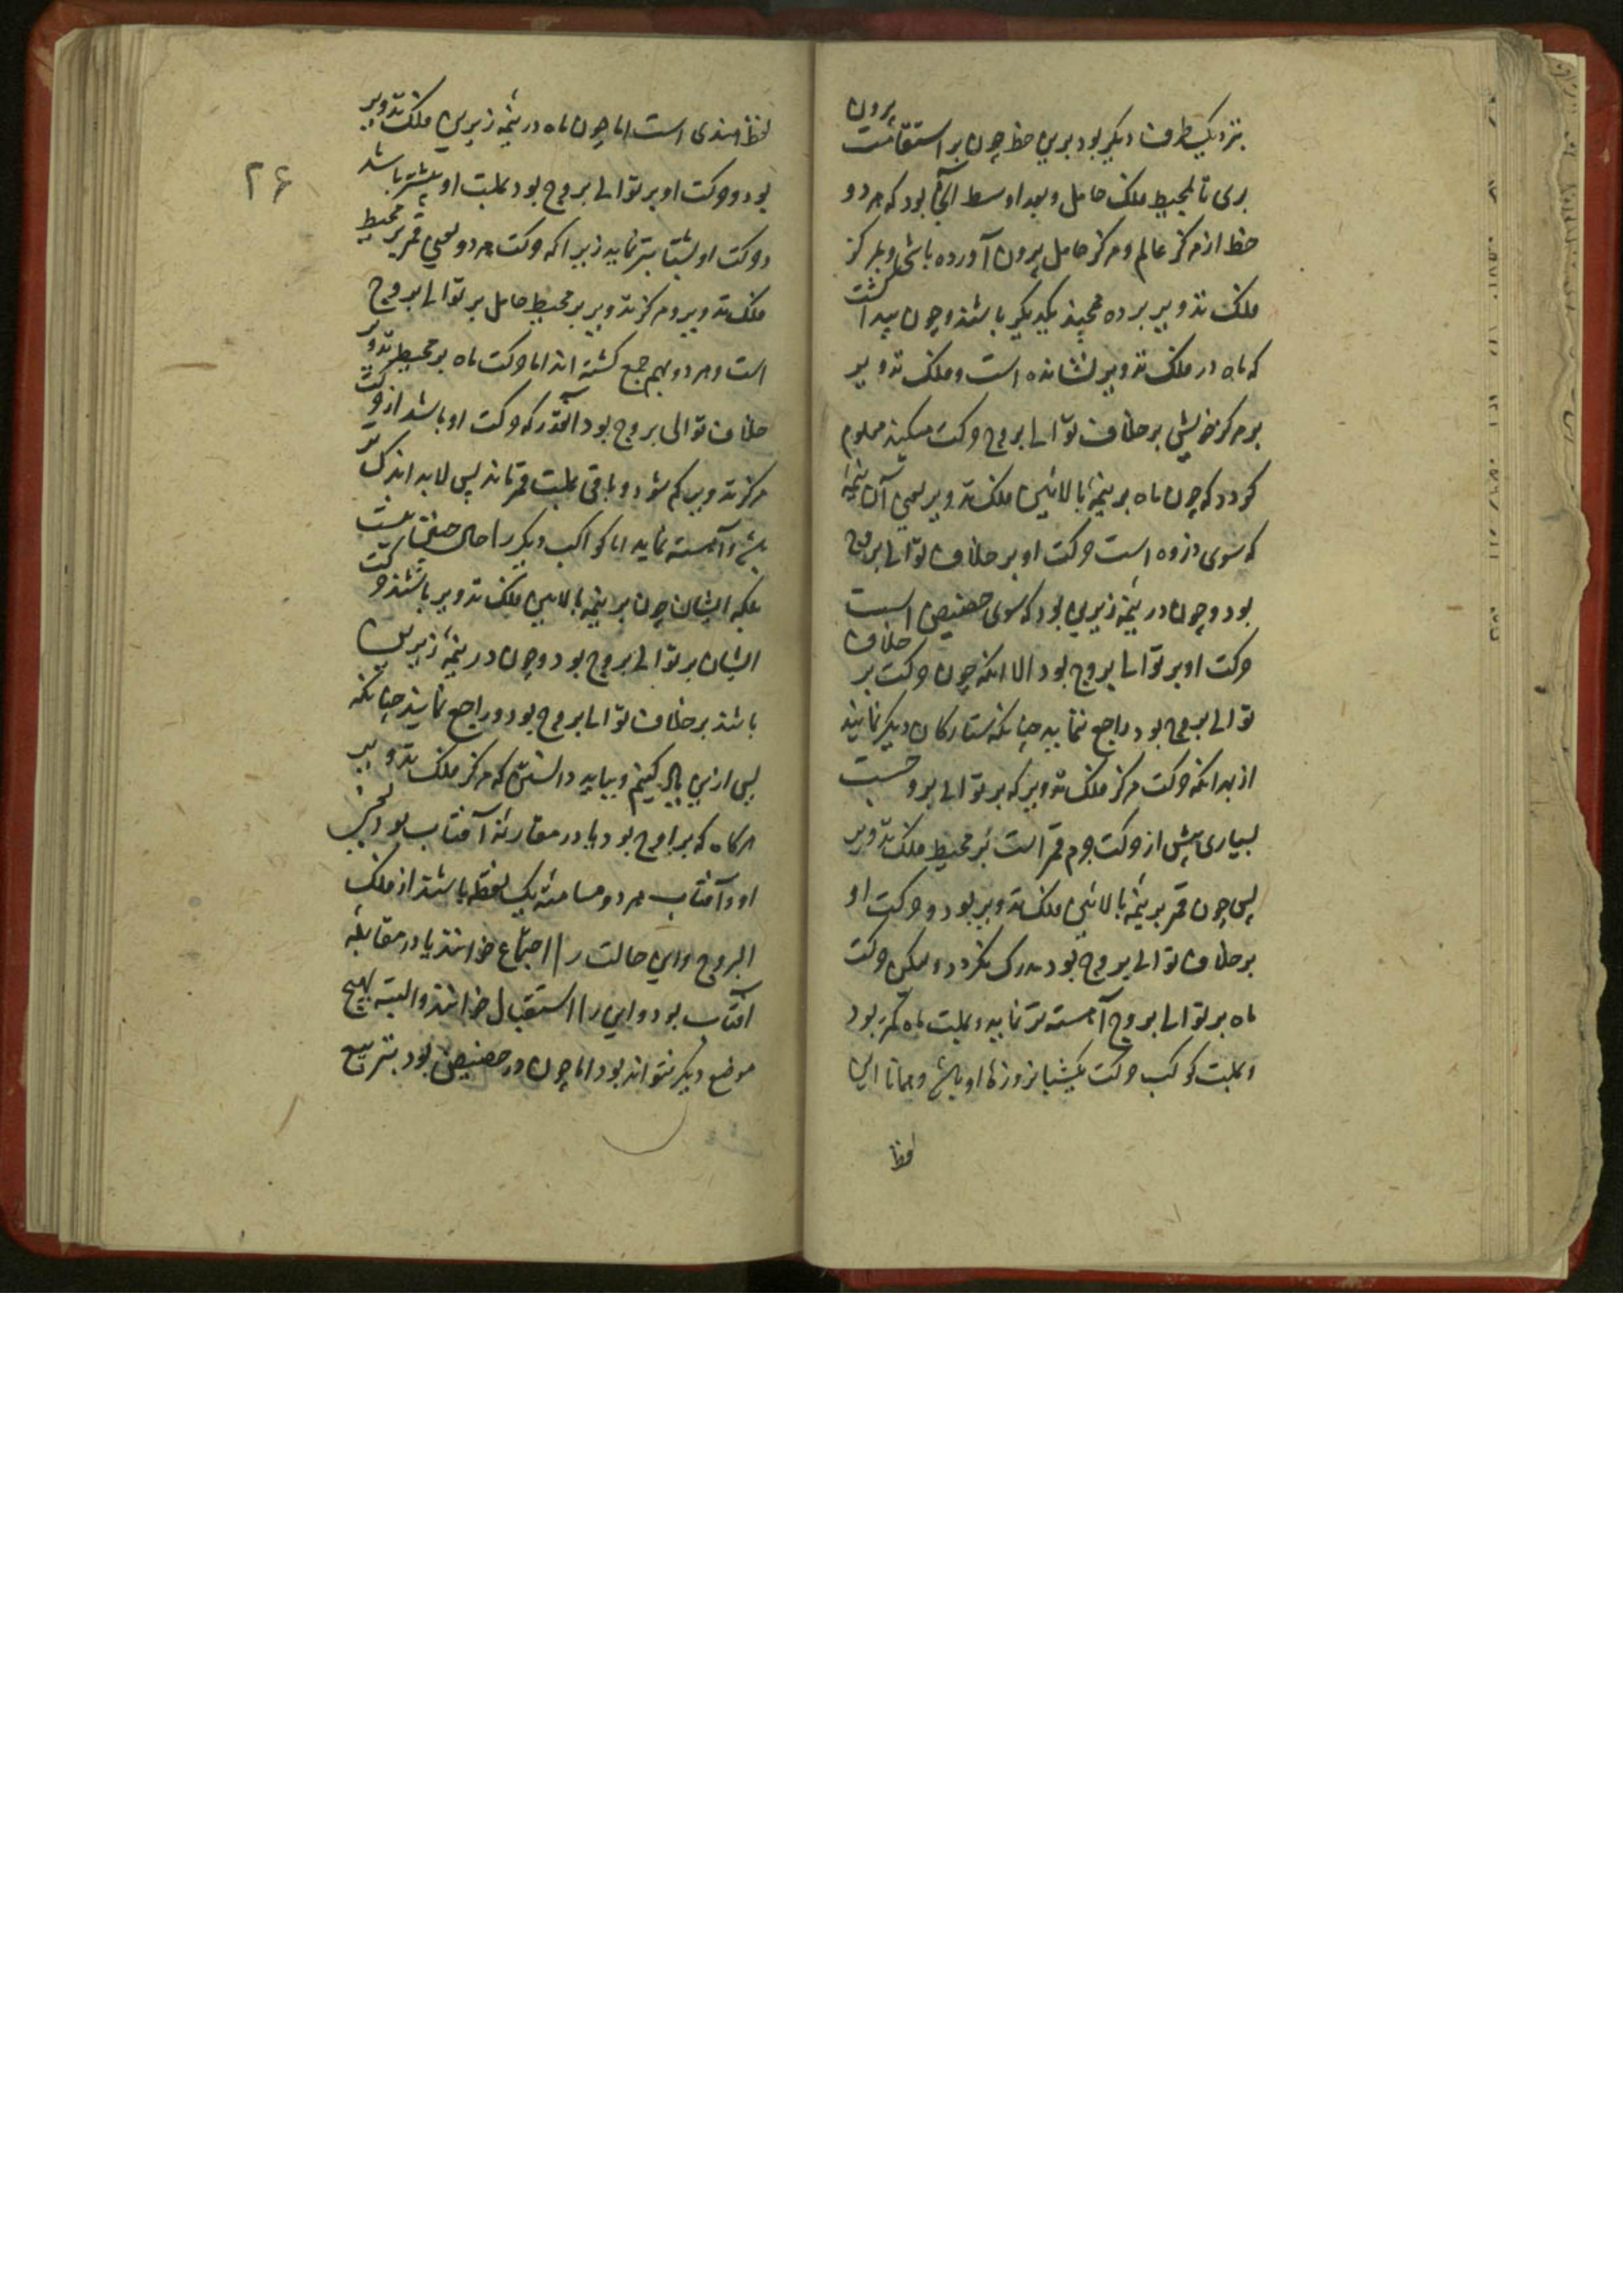 بنزدیک طرف دیگر بود برین خط چون بر استقامت برون
بری تا بمحیط فلک حامل و بعد اوسط آنجا بود که هر دو
خط از مرکز عالم و مرکز حامل برون آورده باشی و بمرکز
فلک تدویر برده یکدیگر باشند و چون پیدا گشت
که ماه در فلک تدویر نشانده است و فلک تدویر
بر مرکز خویش بر خلاف توالی بروج حرکت میکند معلوم
گردد که چون ماه بر نیمه بالائین فلک تدویر یعنی آن نیمه
که سوی ذروه است حرکت او بر خلاف توالی بروج
بود و چون در نیمه زیرین بود که سوی حضیض است
حرکت او بر توالی بروج بود الا انکه چون حرکت بر خلاف
توالی بروج بود راجع ننماید چنانکه ستارگان دیگر نمایند
از بهر انکه حرکت مرکز فلک تدویر که بر توالی بروجست
بسیاری بیش از حرکت جرم قمر است بر محیط فلک تدویر
پس چون قمر بر نیمه بالائین فلک تدویر بود و حرکت او
بر خلاف توالی بروج بود مدرک نگردد و لیکن حرکت
ماه بر توالی بروج آهسته تر نماید و بهت ماه کمتر بود
و بهت کوکب حرکت یکشبانروزی او باشد و همانا این
لفظ
۲۶
لفظ هندی است اما چون ماه در نیمه زیرین فلک تدویر
بود و حرکت او بر توالی بروج بود بهت او بیشتر باشد
و حرکت او بشتاب تر نماید زیرا که حرکت هر دو یعنی قمر بر محیط
فلک تدویر و مرکز تدویر بر محیط حامل بر توالی بروج
است و هر دو بهم جمع گشته اند اما حرکت ماه بر محیط تدویر
خلاف توالی بروج بود آنقدر که حرکت او باشد از حرکت
مرکز تدویر کم شود و باقی بهت قمر ماند پس لابد اندک تر
باشد و آهسته نماید اما کواکب دیگر را حال چنین نیست
بلکه ایشان چون بر نیمه بالایین فلک تدویر باشند حرکت
ایشان بر توالی بروج بود و چون در نیمه زیرین
باشند بر خلاف توالی بروج بود و راجع نمایند چنانکه
پس ازین یاد کنیم و بباید دانستن که مرکز فلک تدویر
هرگاه که بر اوج بود یا در مقارنه آفتاب بود یعنی
او و آفتاب هر دو مسامته یک نقطه باشند از فلک
البروج و این حالت را اجتماع خوانند یا در مقابله
آفتاب بود و این را استقبال خوانند و البته بهیچ
موضع دیگر نتواند بود اما چون در حضیض بود بتربیع